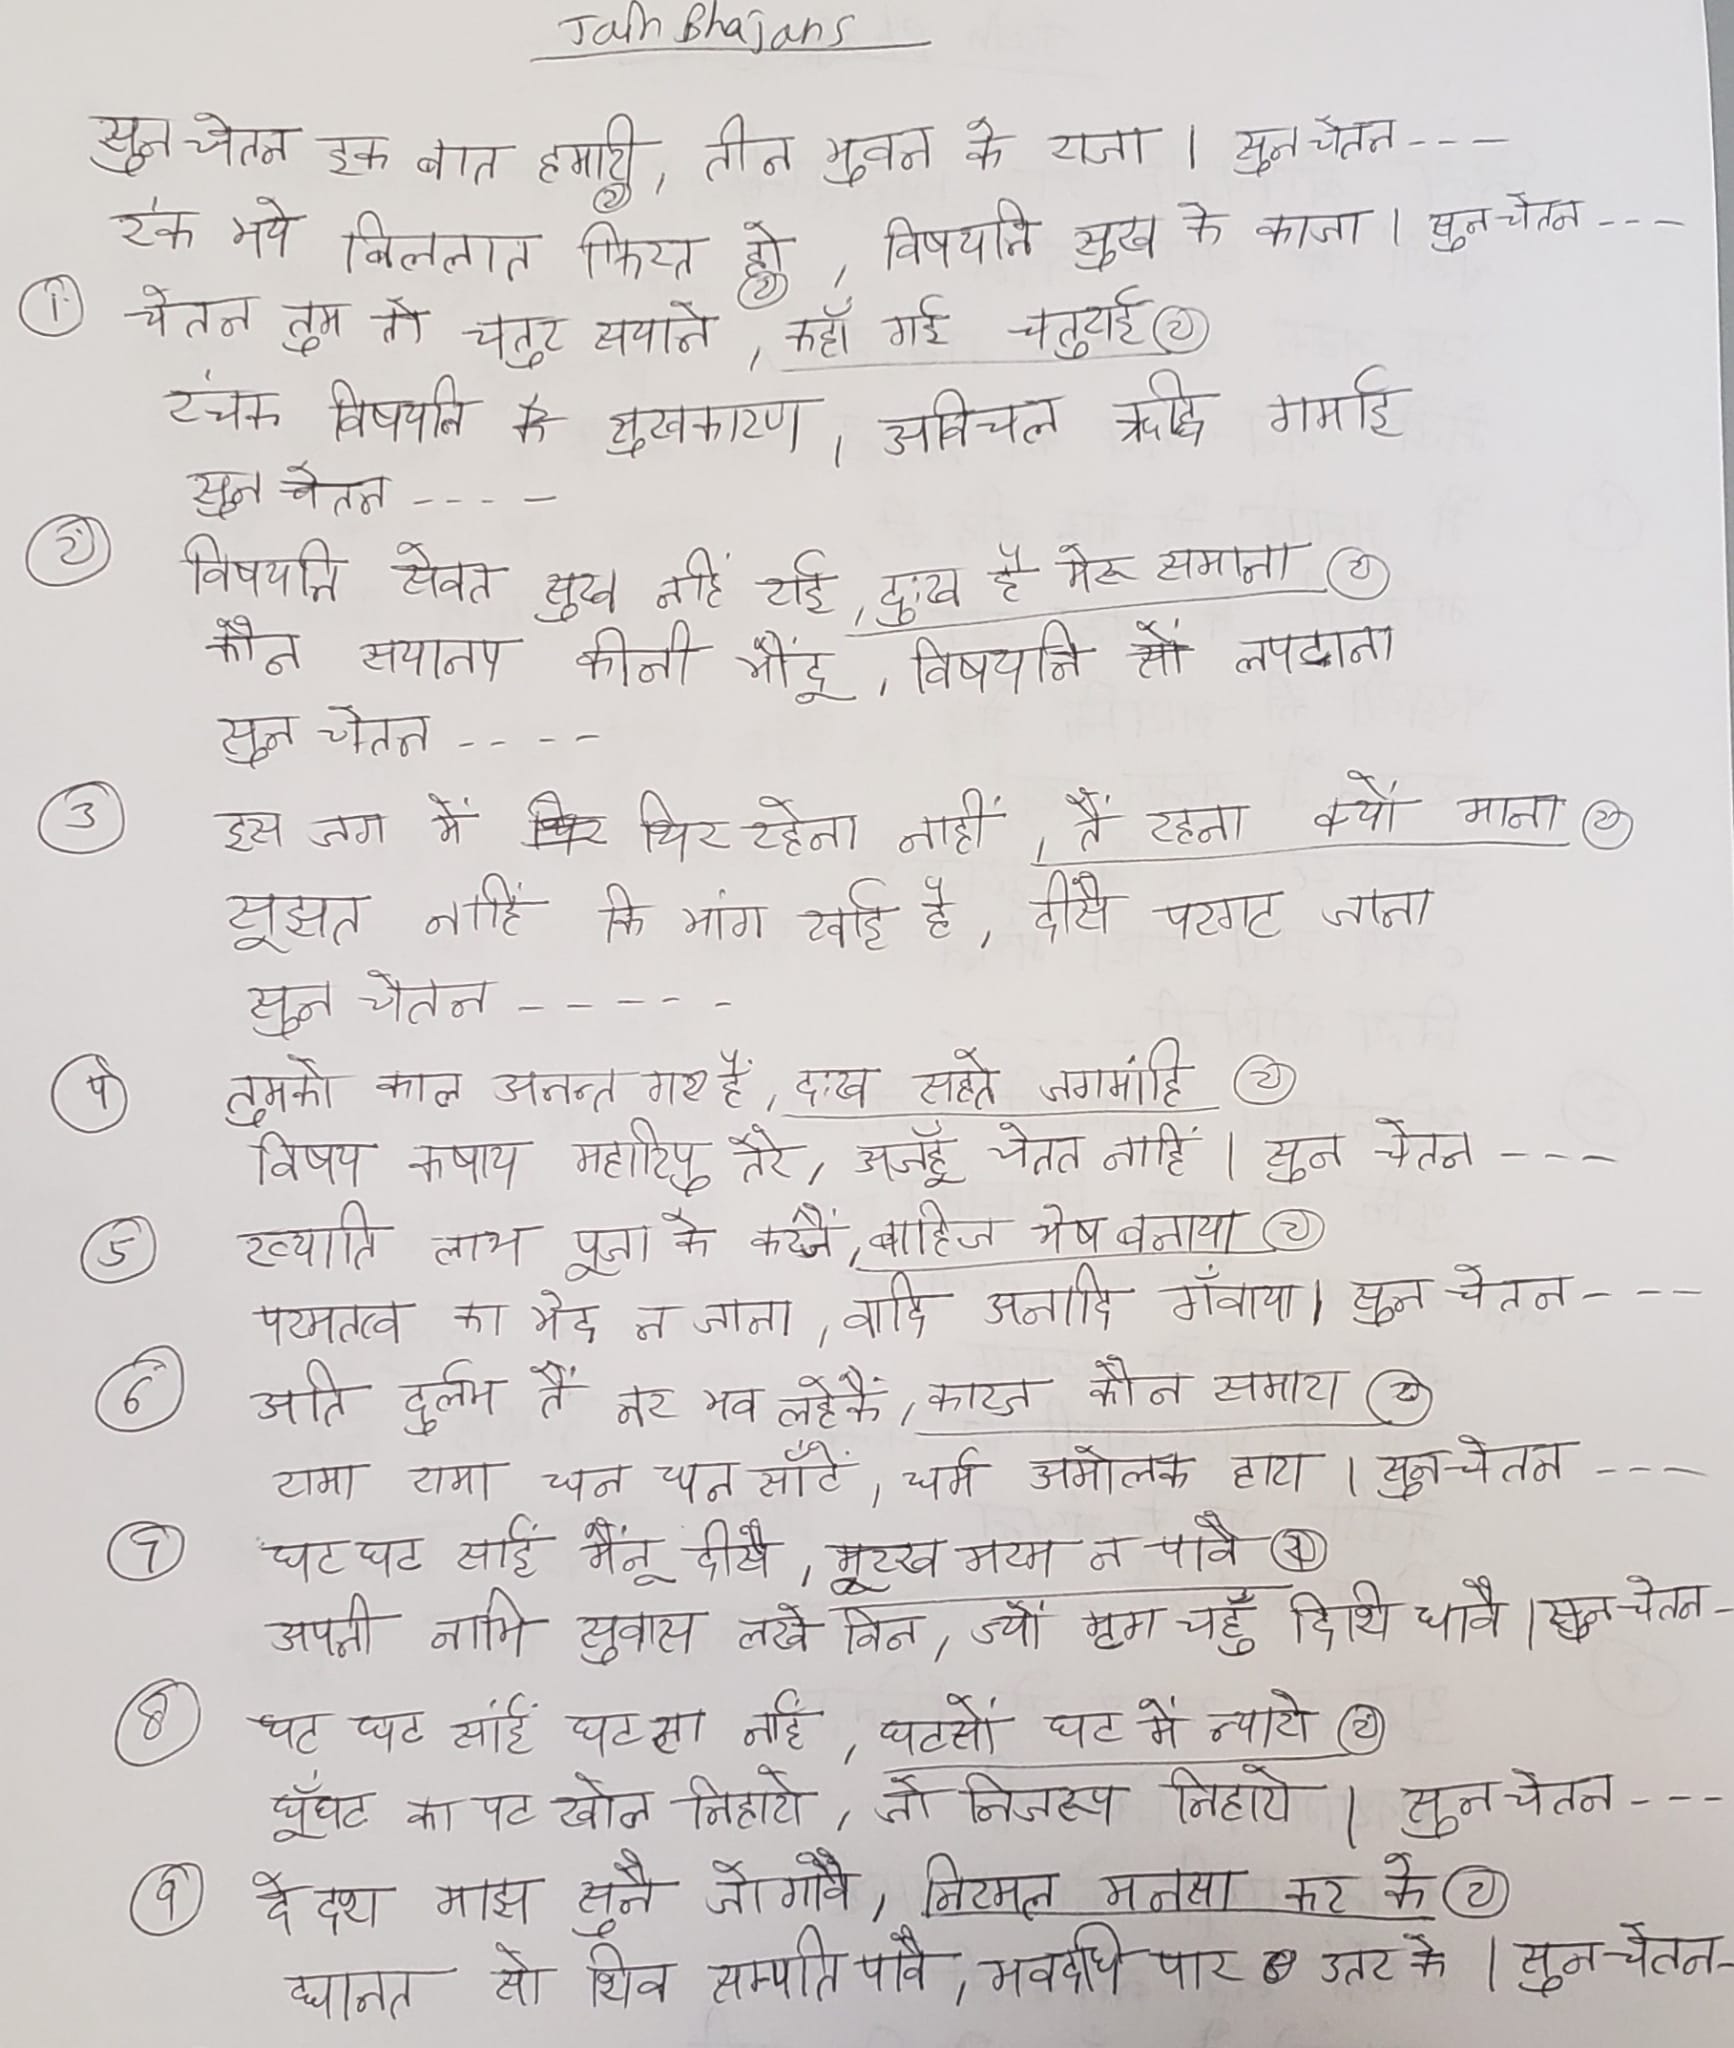 Jain Bhajans
सुन चेतन इक बात हमारी, तीन भुवन के राजा । सुन चेतन ---
रंक भये बिललात फिरत हो, विषयनि सुख के काजा । सुन चेतन ---
① चेतन तुम तो चतुर सयाने, कहाँ गई चतुराई ②
रंचक विषयनि के सुखकारण, अविचल ऋद्धि गमाई
सुन चेतन ----
② विषयनि सेवत सुख नहिं राई, दुःख है मेरू समाना ②
कौन सयानप कीनी भौंदू, विषयनि सों लपटाना
सुन चेतन ----
③ इस जग में थिर रहेना नाहीं, तैं रहना क्यों माना ②
सूझत नाहिं कि भांग खाई है, दीसै परगट जाना
सुन चेतन ------
④ तुमको काल अनन्त गए हैं, दुःख सहते जगमांहि ②
विषय कषाय महारिपु तेरे, अजहूँ चेतत नाहिं । सुन चेतन ---
⑤ ख्याति लाभ पूजा के काजैं, बाहिज भेष बनाया ②
परमतत्व का भेद न जाना, वादि अनादि गँवाया । सुन चेतन ---
⑥ अति दुर्लभ तैं नर भव लहेकैं, कारज कौन समारा ②
रामा रामा धन धन साँटैं, धर्म अमोलक हारा । सुन चेतन ---
⑦ घट घट सांई मैंनू दीसै, मूरख मरम न पावै ②
अपनी नाभि सुवास लखे बिन, ज्यों मृग चहुँ दिशि धावै । सुन चेतन -
⑧ घट घट सांई घट सा नाहिं, घटसों घट में न्यारो ②
घूँघट का पट खोल निहारो, जो निजरूप निहारो । सुन चेतन ---
⑨ ये दश माझ सुनै जो गावै, निरमल मनसा कर के ②
द्यानत सो शिव सम्पति पावै, भवदधि पार उतर के । सुन चेतन -